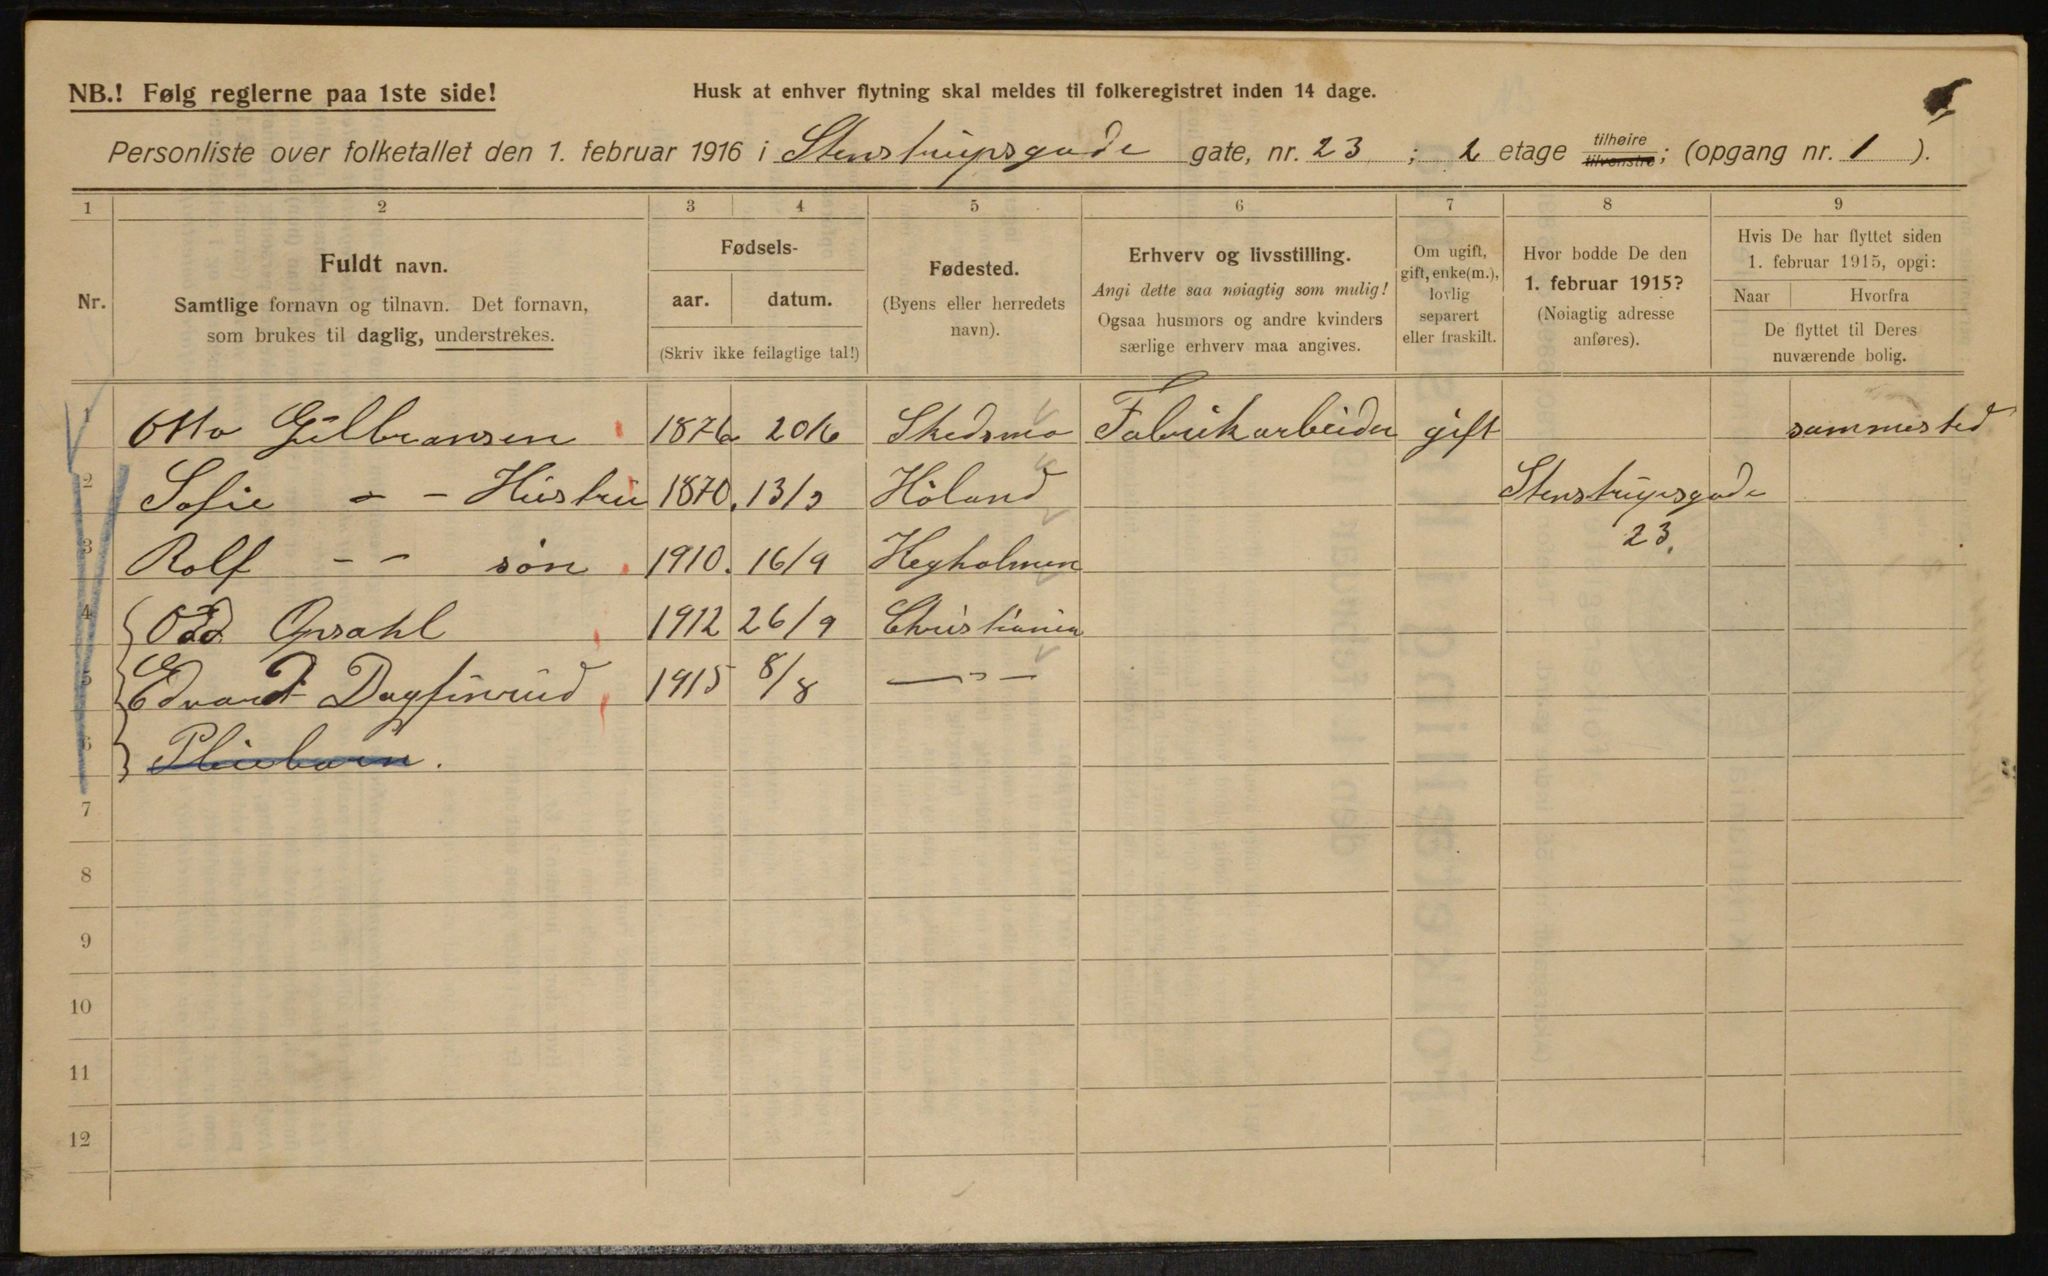 NB.! Følg reglerne paa 1ste side!
Husk at enhver flytning skal meldes til folkeregistret inden 14 dage.
Personliste over folketallet den 1. februar 1916 i Stenstrupsgade gate, nr. 23 ; 2 etage tilhøire tilvenstre; (opgang nr. 1 ).
1 2 3 4 5 6 7 8 9
Nr.
Fuldt navn.
Samtlige fornavn og tilnavn. Det fornavn,
som brukes til daglig, understrekes.
Fødsels-
aar. datum.
(Skriv ikke feilagtige tal!)
Fødested.
(Byens eller herredets
navn).
Erhverv og livsstilling.
Angi dette saa nøiagtig som mulig!
Ogsaa husmors og andre kvinders
særlige erhverv maa angives.
Om ugift,
gift, enke(m.),
lovlig
separert
eller fraskilt.
Hvor bodde De den
1. februar 1915?
(Nøiagtig adresse
anføres).
Hvis De har flyttet siden
1. februar 1915, opgi:
Naar Hvorfra
De flyttet til Deres
nuværende bolig.
1 Otto Gulbransen 1876 20/6 Skedsmo Fabrikarbeider gift sammested
2 Sofie - - Hustru 1870. 13/3 Höland Stenstrupsgade
23.
3 Rolf - - søn 1910. 16/9 Hegholmen
4 Odd Opsahl 1912 26/9 Christiania
5 Edvard Dagfinrud 1915 8/8 - " -
6 Pleiebarn.
7
8
9
10
11
12